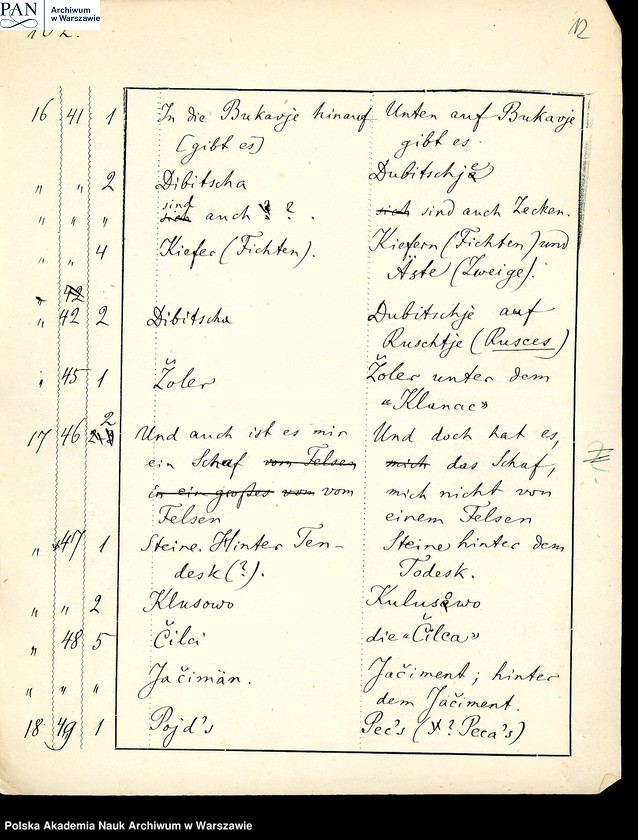 PAN Archiwum
w Warszawie
102.
12
16 41 1 In die Bukavje hinauf Unten auf Bukavje
[gibt es] gibt es.
" " 2 Dibitscha Dubitschje
sind
" " " sich auch ? ? . sich sind auch Zecken.
" " 4 Kiefer (Fichten). Kiefern (Fichten) und
Äste (Zweige).
" 42
" 42 2 Dibitscha Dubitschje auf
Ruschtje (Rusces)
" 45 1 Žoler Žoler unter dem
"Klanac"
2
17 46 Und auch ist es mir Und doch hat es,
ein Schaf vom Felsen mich das Schaf,
in ein großes vom vom mich nicht von
Felsen einem Felsen
" 47 1 Steine. Hinter Ten- Steine hinter dem
desk (?). Todesk.
" " 2 Klusowo Kulusowo
" 48 5 Čilci die "Čilca"
" " " Jačimän. Jačiment; hinter
dem Jačiment.
18 49 1 Pojd's Pec's ( ? Peca's)
Polska Akademia Nauk Archiwum w Warszawie